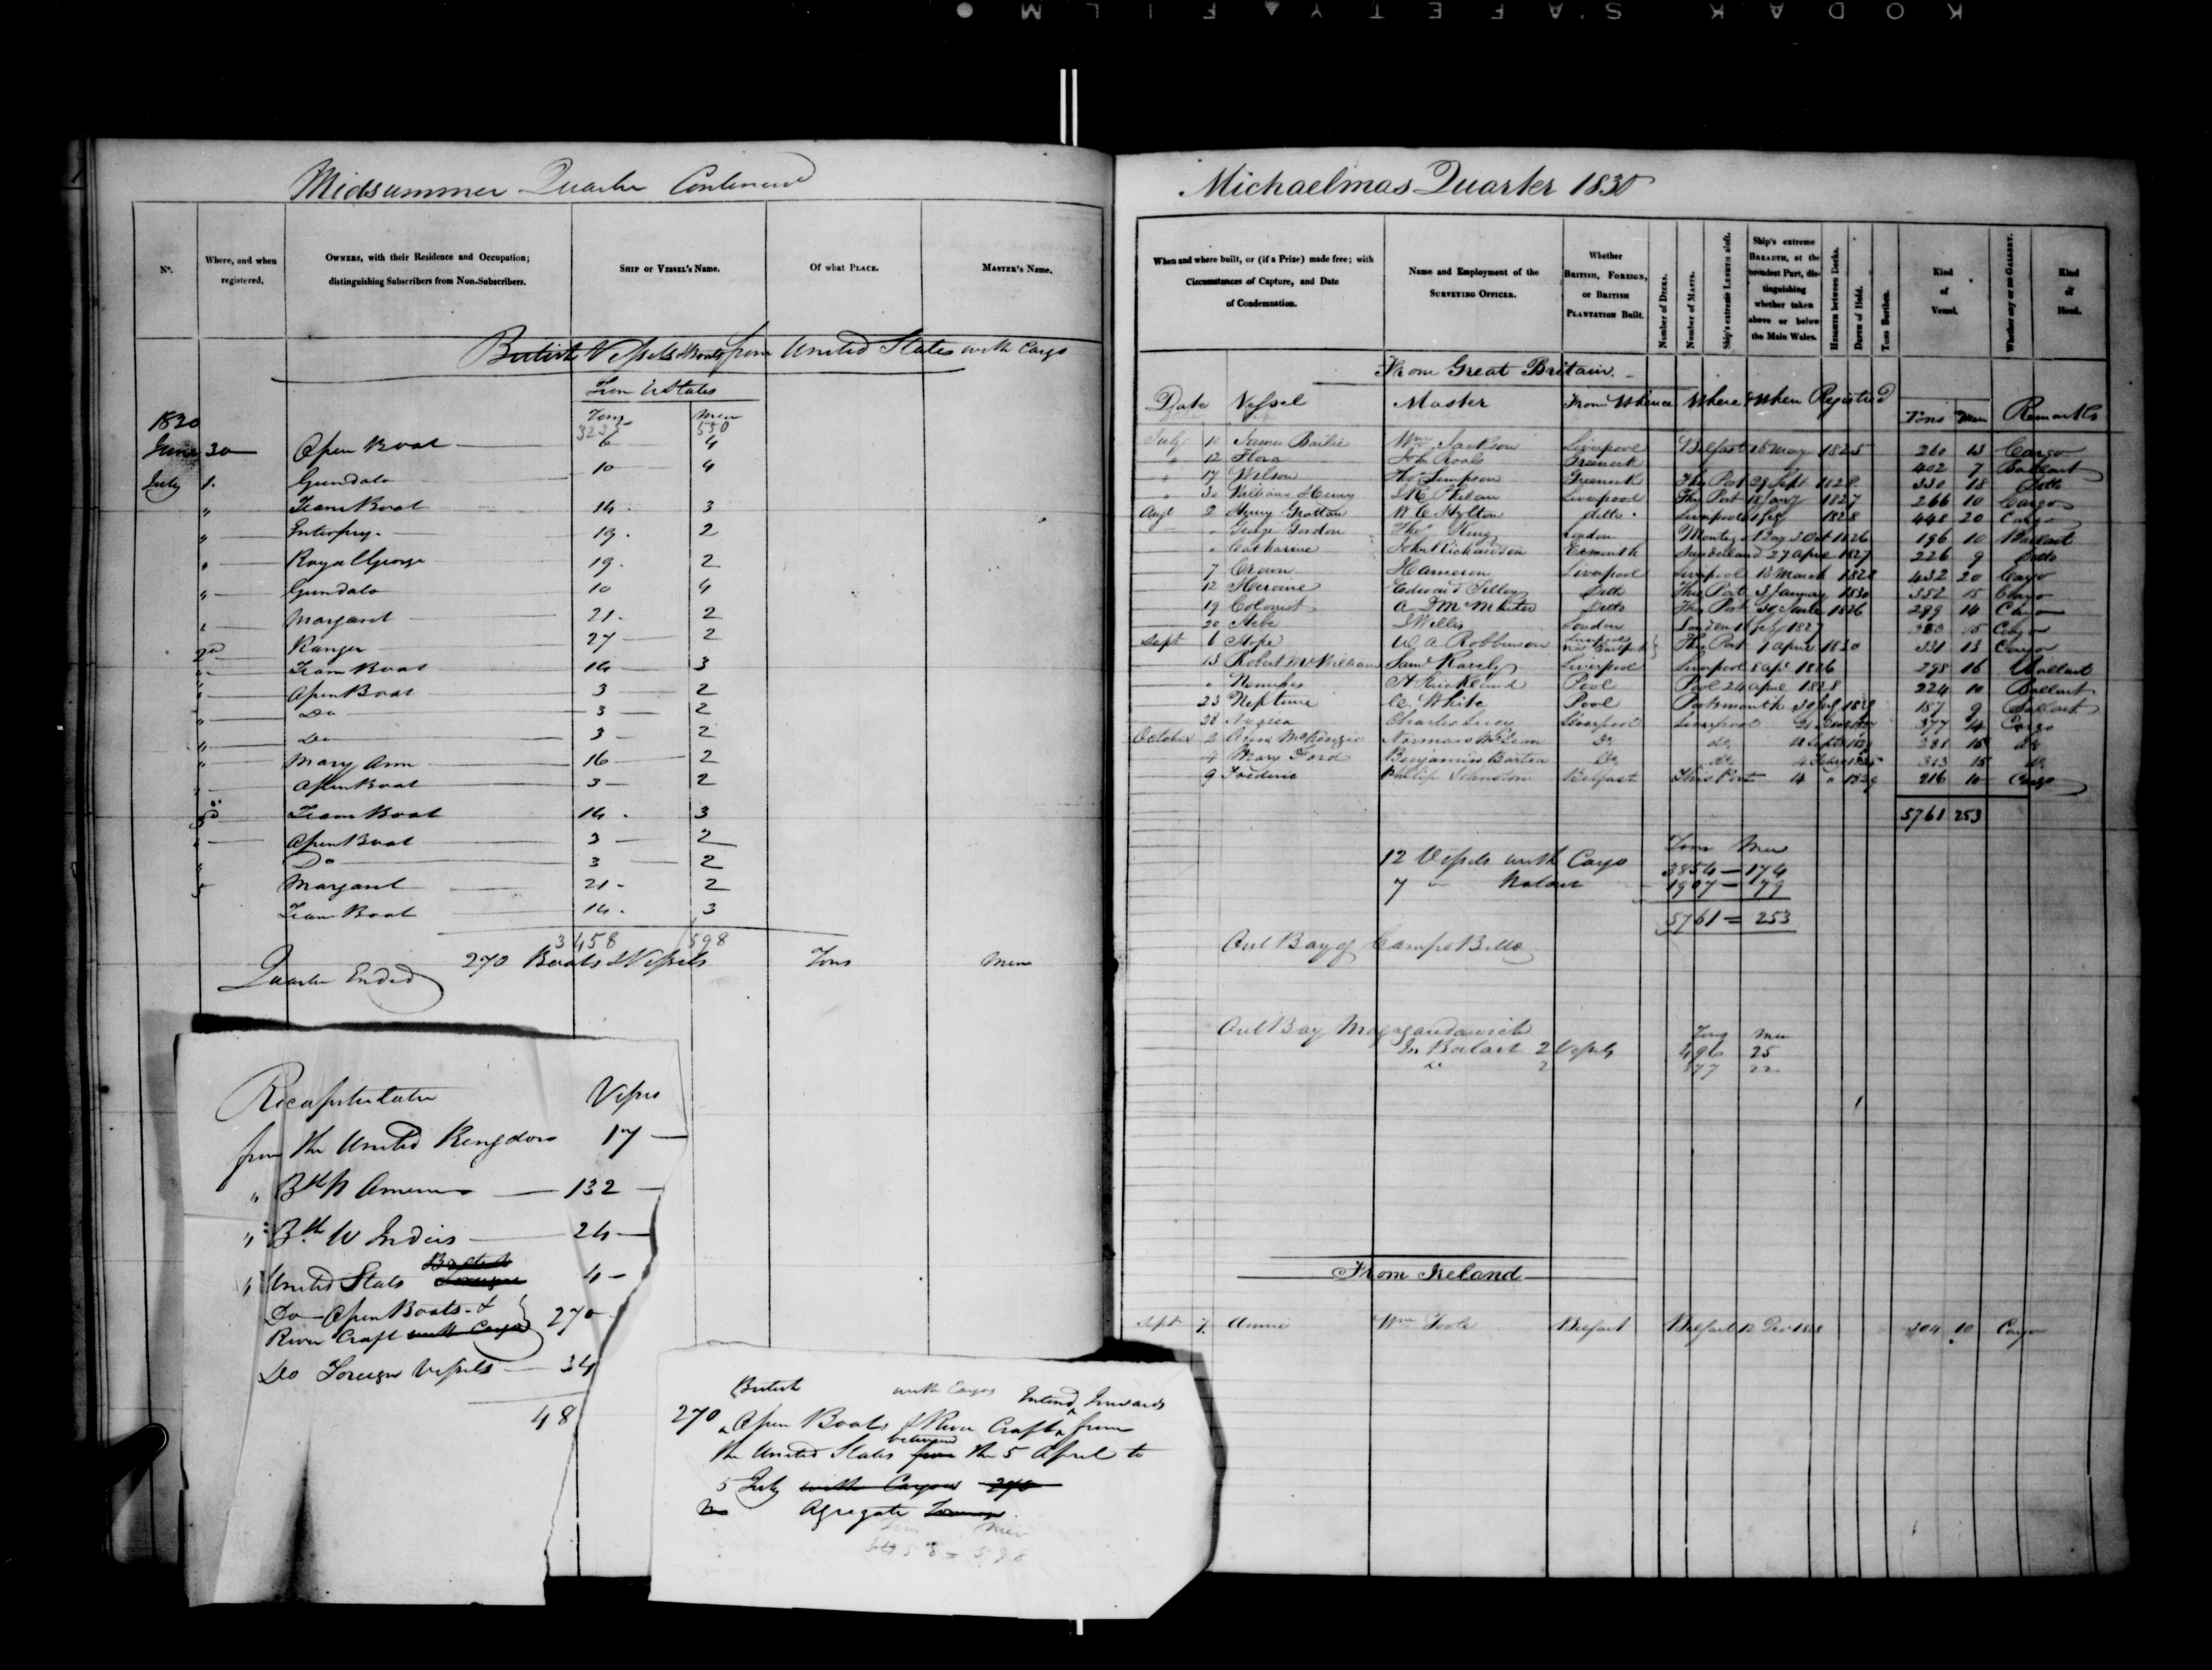 KODAK SAFETY FILM
Midsummer Quarter Continued
No.
Where, and when registered.
OWNERS, with their Residence and Occupation; distinguishing Subscribers from Non-Subscribers.
SHIP or VESSEL's NAME.
Of what PLACE.
MASTER's NAME.
British Vessels & Boats from United States with Cargo
From U States
Tons Men
1830 3233 550
June 30 Open Boat 6 4
July 1. Gundalo 10 4
" Team Boat 14 3
" Enterpry 19 2
" Royal George 19 2
" Gundalo 10 4
" Margaret 21 2
2d Ranger 27 2
" Team Boat 14 3
" Open Boat 3 2
" Do 3 2
" Do 3 2
" Mary Ann 16 2
" Open Boat 3 2
3d Team Boat 14 3
" Open Boat 3 2
" Do 3 2
5 Margaret 21 2
Team Boat 14 3
3458 598
270 Boats & Vessels Tons Men
Quarter Ended
Recapitulation Vessels
from the United Kingdom 17
" Bth N America 132
" Bth W Indies 24
" United States 4
Do Open Boats &
River Craft with Cargo 270
Do Foreign Vessels 34
48
British with Cargos Inwards
270 Open Boats & River Craft from
the United States between from the 5 April to
5 July with Cargoes 270
No Agregate
Tons Men
3458 = 598
Michaelmas Quarter 1830
When and where built, or (if a Prize) made free; with Circumstances of Capture, and Date of Condemnation.
Name and Employment of the SURVEYING OFFICER.
Whether BRITISH, FOREIGN, or BRITISH PLANTATION BUILT.
Number of DECKS.
Number of MASTS.
Ship's extreme LENGTH aloft.
Ship's extreme BREADTH, at the broadest Part, distinguishing whether taken above or below the Main Wales.
HEIGHTH between Decks.
DEPTH of Hold.
TONS Burthen.
Kind of Vessel.
Whether any or no GALLERY.
Kind of Head.
From Great Britain.
Date Vessel Master From Whence Where & When Registred Tons Men Remarks
July 10 James Bailie Wm Jackson Liverpool Belfast 16 May 1825 260 13 Cargo
" 12 Flora Greenock 402 7 Ballast
" 17 Wilson Ths Simpson Greenock This Port 29 Sept 1828 330 18 Ditto
" 30 William Henry Liverpool This Port 18 Jany 1827 266 10 Cargo
Augt 2 Henry Grattan W C Hylton ditto Liverpool 1828 448 20 Cargo
" George Gordon Thos King London Montego Bay 3 Oct 1826 196 10 Ballast
" Catharine John Richardson Exmouth Sunderland 27 April 1827 226 9 Ditto
7 Crown Liverpool Liverpool 13 March 1828 432 20 Cargo
12 Heroine Edward Tilley Ditto This Port 3 January 1830 352 15 Cargo
19 Colonist A McMaster Ditto This Port 30 June 1826 289 14 Cargo
20 Hebe J Willis London London 1827 Cargo
Sept 6 Hope W A Robbinson Liverpool This Port 1 April 1830 331 13 Cargo
13 Robert McWilliam Saml Liverpool Liverpool 5 apl 1826 298 16 Ballast
" Strickland Pool Pool 24 april 1828 224 10 Ballast
23 Neptune C. White Pool Portsmouth 187 9 Ballast
28 Charles Liverpool Liverpool 377 14 Cargo
October 2 Anna McKenzie Norman McLean Do do 281 15 do
4 Mary Ford Benjamin Barton Do do 313 15 do
9 Frederic Philip Johnston Belfast This Port 4 " 1829 216 10 Cargo
5761 253
Tons Men
12 Vessels with Cargo 3854 — 174
7 " Balast 1907 — 79
5761 = 253
Out Bay of Campo Bello
Out Bay Magagaudavick Tons Men
In Balast 2 Vessels 496 25
do 2 22
From Ireland
Sept 7. Annie Wm Toole Belfast Belfast 12 Dec 1828 304 10 Cargo